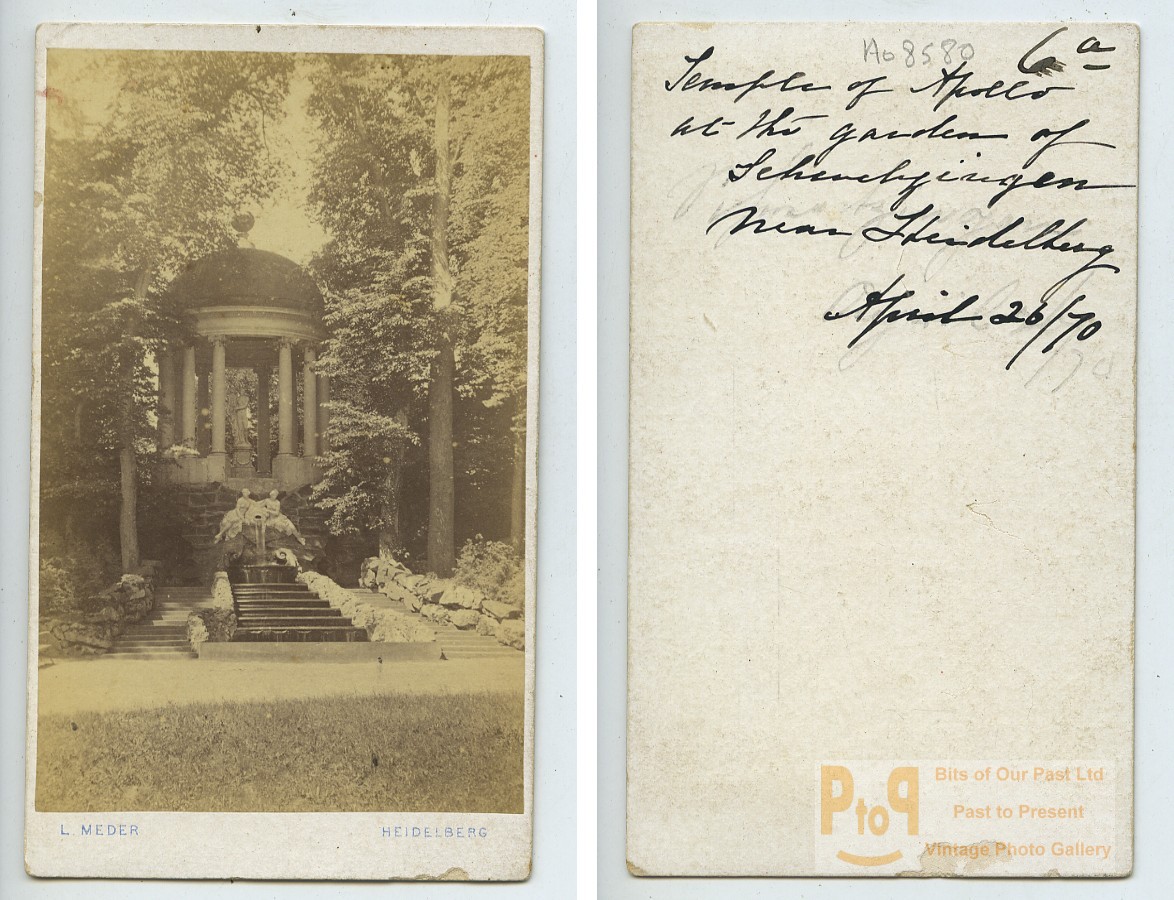 L. MEDER
HEIDELBERG
No 8580
6a
Temple of Apollo
at the garden of
Schwebzingen
near Heidelberg
April 26/70
PtoP
Bits of Our Past Ltd
Past to Present
Vintage Photo Gallery